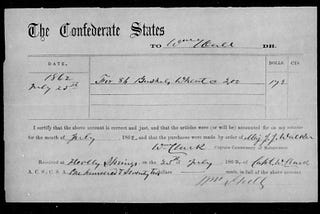 The Confederate States
TO Hull DR.
DATE. DOLLS. CTS.
1862
July 25th For 86 Bushels Wheat @ 2.00 172
I certify that the above account is correct and just, and that the articles were (or will be) accounted for on my return
for the month of July 1862, and that the purchases were made by order of Maj J. J. Walker
Wm Clark
Captain Commissary of Subsistence
Received at Holly Springs the 25th July 1862, of Capt Wm Clark
A. C. S., C. S. A. One hundred & Seventy two dollars in full of the above account
Wm